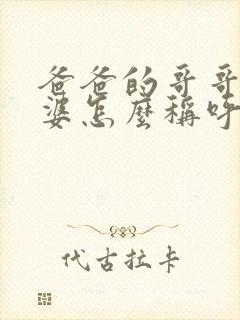 爸爸的哥哥
婆怎麼稱呼
代古拉卡